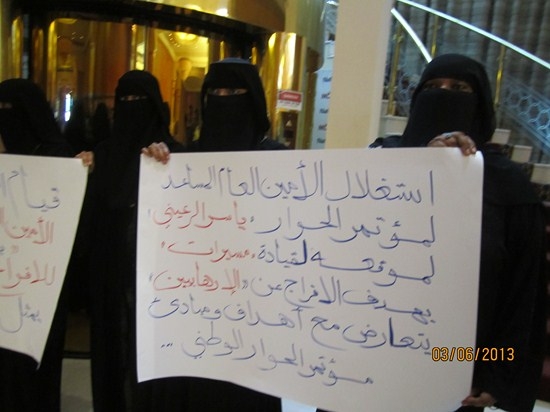 استغلال الأمين العام المساعد
لمؤتمر الحوار "ياسر الرعيني"
لموقعه لقيادة "مسيرات"
بهدف الافراج عن "الإرهابيين"
يتعارض مع أهداف ومبادئ
مؤتمر الحوار الوطني ...
قيام ا
الأمين
للافراج
يمثل
03/06/2013